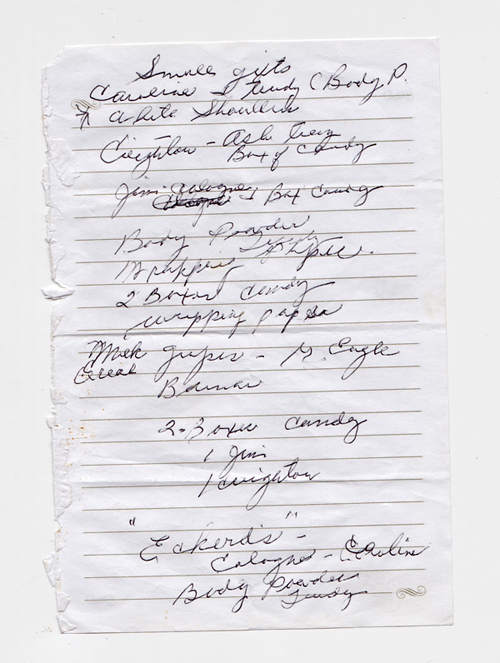 Small gifts
Caroline & Trudy (Body P.
* White Shoulders
Creightow - Ash Tray
Box of Candy
Jim - Cologne & Box Candy
Body Powder
Trudy
Wrapping
2 Boxes Candy
wrapping paper
Milk grapes - G. Eagle
Bread
Banan
2 - Boxes Candy
1 Jim
1 Creightow
"Eckerd's" -
Cologne - Caroline
Body Powder
Trudy